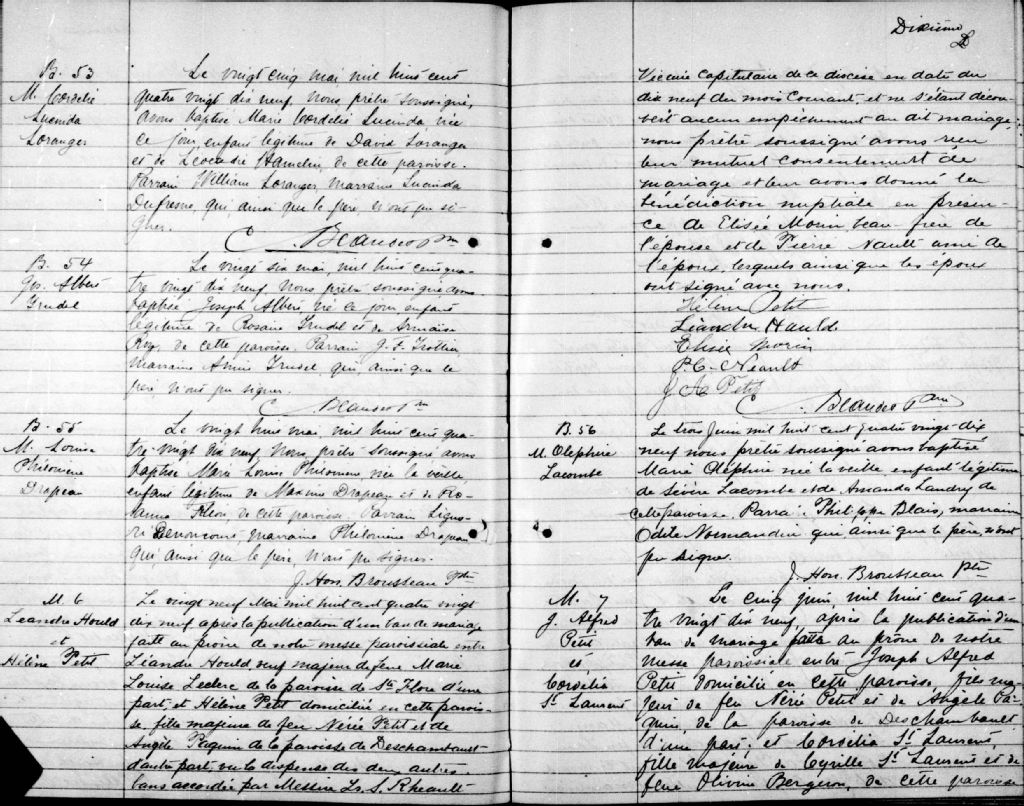 B. 53
M. Cordélie
Lucinda
Loranger
Le vingt cinq mai, mil huit cent
quatre vingt dix neuf, nous, prêtre soussigné,
avons baptisé Marie Cordélie Lucinda, née
ce jour, enfant légitime de David Loranger
et de Léocadie Hamelin, de cette paroisse.
Parrain William Loranger, marraine Lucinda
Dufresne, qui, ainsi que le père, n'ont pu si-
gner.
B. 54
Jos. Albéri
Trudel
Le vingt six mai, mil huit cent qua-
tre vingt dix neuf, nous prêtre soussigné, avons
baptisé Joseph Albéri, né ce jour, enfant
légitime de Rosaire Trudel et de
de cette paroisse. Parrain J. F. Trottier
marraine Annie Trudel qui, ainsi que le
père n'ont pu signer.
B. 55
M. Louise
Philomène
Drapeau
Le vingt huit mai, mil huit cent qua-
tre-vingt dix neuf, nous, prêtre soussigné avons
baptisé Marie Louise Philomène, née la veille,
enfant légitime de Maxime Drapeau et de Ro-
de cette paroisse. Parrain Liguo-
ri Denoncourt, marraine Philomène Drapeau
qui, ainsi que le père, n'ont pu signer.
J. Hon. Brousseau Ptre
M. 6
Léandre Hould
et
Hélène Petit
Le vingt neuf Mai mil huit cent quatre vingt
dix neuf après la publication d'un ban de mariage
faite au prône de notre messe paroissiale entre
Léandre Hould veuf majeur de feue Marie
Louise Leclerc de la paroisse de Ste Flore d'une
part, et Hélène Petit domiciliée en cette parois-
se, fille majeure de feu Nérée Petit et de
Angèle Paquin de la paroisse de Deschambault
d'autre part, vu la dispense des deux autres
bans accordée par Messire Ls. S. Rheault
Dixième
Vicaire Capitulaire de ce diocèse en date du
dix neuf du mois courant, et ne s'étant décou-
vert aucun empêchement au dit mariage,
nous prêtre soussigné avons reçu
leur mutuel consentement de
mariage et leur avons donné la
bénédiction nuptiale en présen-
ce de Elisée Morin beau-frère de
l'épouse et de Pierre Nault ami de
l'époux, lesquels ainsi que les époux
ont signé avec nous.
Hélène Petit
Léandre Hould
Elisée Morin
P. C. Neault
J A Petit
B. 56
M. Oléphire
Lacombe
Le trois Juin mil huit cent quatre vingt-dix
neuf nous prêtre soussigné avons baptisé
Marie Oléphire née la veille, enfant légitime
de Sévère Lacombe et de Amanda Landry de
cette paroisse. Parra: Philippe Blais, marraine
Odile Normandin qui ainsi que le père, n'ont
pu signer.
J. Hon. Brousseau Ptre
M. 7
J. Alfred
Petit
et
Cordélia
St. Laurent
Le cinq juin, mil huit cent qua-
tre vingt dix neuf, après la publication d'un
ban de mariage faite au prône de notre
messe paroissiale entre Joseph Alfred
Petit domicilié en cette paroisse, fils ma-
jeur de feu Nérée Petit et de Angèle Pa-
quin, de la paroisse de Deschambault
d'une part, et Cordélia St. Laurent,
fille majeure de Cyrille St. Laurent et de
feue Olivine Bergeron, de cette paroisse